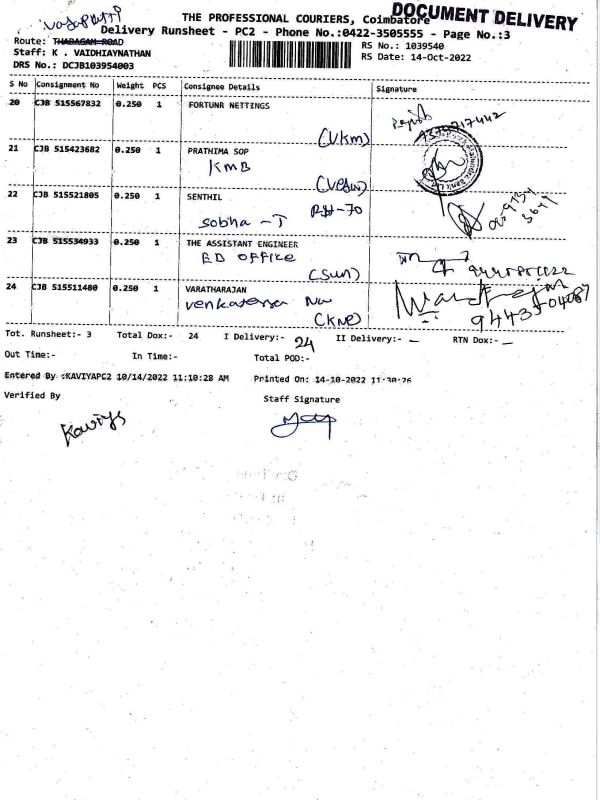 THE PROFESSIONAL COURIERS, Coimbatore
DOCUMENT DELIVERY
Delivery Runsheet - PC2 - Phone No.:0422-3505555 - Page No.:3
Route: THADAGAM ROAD
RS No.: 1039540
Staff: K . VAIDHIAYNATHAN
RS Date: 14-Oct-2022
DRS No.: DCJB103954003
S No Consignment No Weight PCS Consignee Details Signature
20 CJB 515567832 0.250 1 FORTUNR NETTINGS
(VKm)
21 CJB 515423682 0.250 1 PRATHIMA SOP
KMB
22 CJB 515521805 0.250 1 SENTHIL
RH-70
sobha - T
23 CJB 515534933 0.250 1 THE ASSISTANT ENGINEER
ED OFFICE
(Sun)
24 CJB 515511480 0.250 1 VARATHARAJAN
venkatessa Nw
(KNP)
Tot. Runsheet:- 3 Total Dox:- 24 I Delivery:- 24 II Delivery:- - RTN Dox:- -
Out Time:- In Time:- Total POD:-
Entered By :KAVIYAPC2 10/14/2022 11:10:28 AM Printed On: 14-10-2022 11:30:26
Verified By Staff Signature
Kaviya